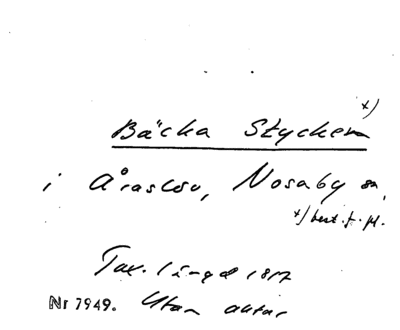 x)
Bäcka Stycken
i Åraslöv, Nosaby sn,
x) best. f. pl.
Tax. längd 1817
Nr 7949. Utan aktar